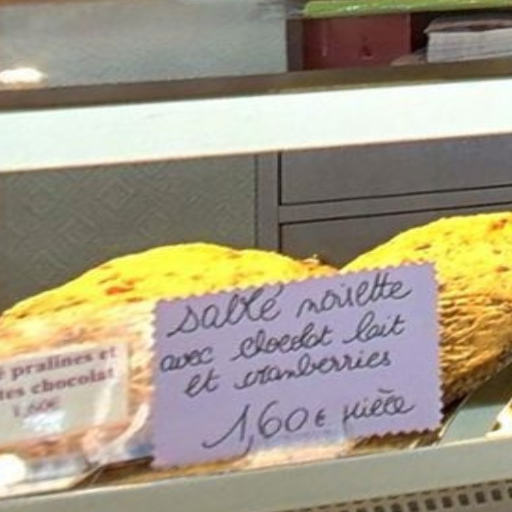 sablé noisette
avec chocolat lait
et cranberries
1,60€ pièce
é pralines et
tes chocolat
1,60€